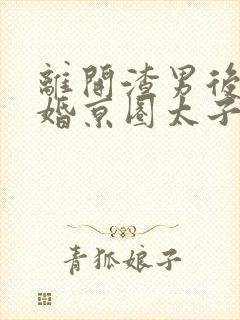 離開渣男後
婚京圈太子
青狐娘子